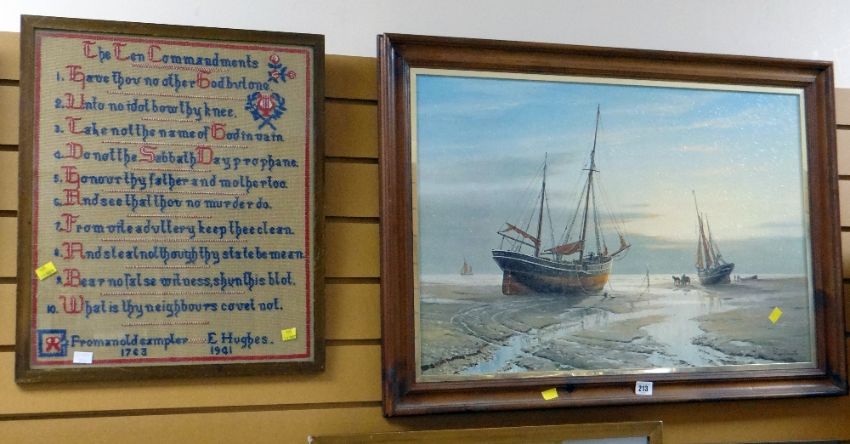 The Ten Commandments
1. Have thou no other God but one.
2. Unto no idol bow thy knee.
3. Take not the name of God in vain
4. Do not the Sabbath Day prophane.
5. Honour thy father and mother too.
6. And see that thou no murder do.
7. From vile advltery keep thee clean.
8. And steal not though thy state be mean
9. Bear no false witness, shun this blot.
10. What is thy neighbours covet not.
From an old sampler E Hughes.
1763 1941
213